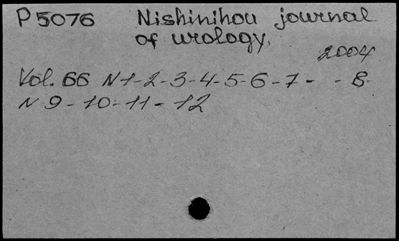 P 5076 Nishinihou journal
of urology.
2004
Vol. 66 N1-2-3-4-5-6-7- -8-
N 9-10-11-12